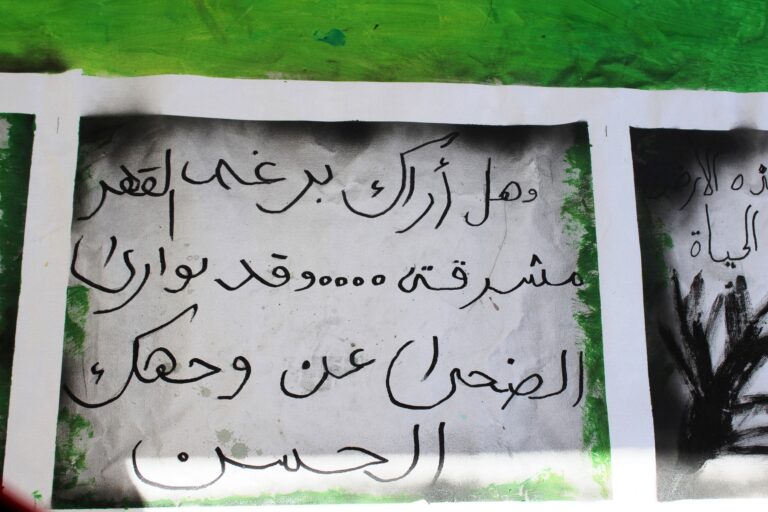 وهل أراك برغم القهر
مشرقة ....وقد توارى
الضحى عن وجهك
الحسن
ذه الارض
الحياة